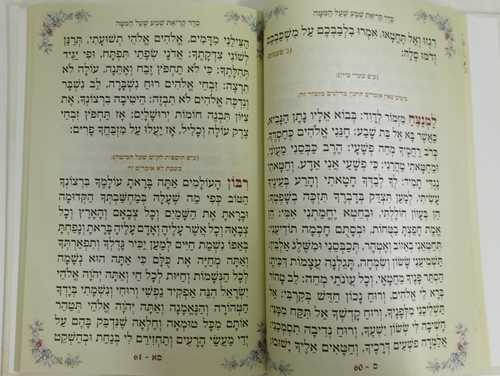 סֵדֶר קְרִיאַת שְׁמַע שֶׁעַל הַמִּטָּה
רִגְזוּ וְאַל תֶּחֱטָאוּ, אִמְרוּ בִלְבַבְכֶם עַל מִשְׁכַּבְכֶם
וְדֹמּוּ סֶלָה: (ג׳ פעמים)
לַמְנַצֵּחַ מִזְמוֹר לְדָוִד: בְּבוֹא אֵלָיו נָתָן הַנָּבִיא,
כַּאֲשֶׁר בָּא אֶל בַּת שָׁבַע: חָנֵּנִי אֱלֹהִים כְּחַסְדֶּךָ
כְּרֹב רַחֲמֶיךָ מְחֵה פְשָׁעָי: הֶרֶב כַּבְּסֵנִי מֵעֲוֹנִי
וּמֵחַטָּאתִי טַהֲרֵנִי: כִּי פְשָׁעַי אֲנִי אֵדָע, וְחַטָּאתִי
נֶגְדִּי תָמִיד: לְךָ לְבַדְּךָ חָטָאתִי וְהָרַע בְּעֵינֶיךָ
עָשִׂיתִי, לְמַעַן תִּצְדַּק בְּדָבְרֶךָ תִּזְכֶּה בְשָׁפְטֶךָ:
הֵן בְּעָווֹן חוֹלָלְתִּי, וּבְחֵטְא יֶחֱמַתְנִי אִמִּי: הֵן
אֱמֶת חָפַצְתָּ בַטֻּחוֹת, וּבְסָתֻם חָכְמָה תוֹדִיעֵנִי:
תְּחַטְּאֵנִי בְאֵזוֹב וְאֶטְהָר, תְּכַבְּסֵנִי וּמִשֶּׁלֶג אַלְבִּין:
תַּשְׁמִיעֵנִי שָׂשׂוֹן וְשִׂמְחָה, תָּגֵלְנָה עֲצָמוֹת דִּכִּיתָ:
הַסְתֵּר פָּנֶיךָ מֵחֲטָאָי, וְכָל עֲוֹנֹתַי מְחֵה: לֵב טָהוֹר
בְּרָא לִי אֱלֹהִים, וְרוּחַ נָכוֹן חַדֵּשׁ בְּקִרְבִּי: אַל
תַּשְׁלִיכֵנִי מִלְּפָנֶיךָ, וְרוּחַ קָדְשְׁךָ אַל תִּקַּח מִמֶּנִּי:
הָשִׁיבָה לִּי שְׂשׂוֹן יִשְׁעֶךָ, וְרוּחַ נְדִיבָה תִסְמְכֵנִי:
אֲלַמְּדָה פֹשְׁעִים דְּרָכֶיךָ, וְחַטָּאִים אֵלֶיךָ יָשׁוּבוּ:
ס - 60
סֵדֶר קְרִיאַת שְׁמַע שֶׁעַל הַמִּטָּה
הַצִּילֵנִי מִדָּמִים, אֱלֹהִים אֱלֹהֵי תְּשׁוּעָתִי, תְּרַנֵּן
לְשׁוֹנִי צִדְקָתֶךָ: אֲדֹנָי שְׂפָתַי תִּפְתָּח, וּפִי יַגִּיד
תְּהִלָּתֶךָ: כִּי לֹא תַחְפֹּץ זֶבַח וְאֶתֵּנָה, עוֹלָה לֹא
תִרְצֶה: זִבְחֵי אֱלֹהִים רוּחַ נִשְׁבָּרָה, לֵב נִשְׁבָּר
וְנִדְכֶּה אֱלֹהִים לֹא תִבְזֶה: הֵיטִיבָה בִרְצוֹנְךָ אֶת
צִיּוֹן תִּבְנֶה חוֹמוֹת יְרוּשָׁלָיִם: אָז תַּחְפֹּץ זִבְחֵי
צֶדֶק עוֹלָה וְכָלִיל, אָז יַעֲלוּ עַל מִזְבַּחֲךָ פָרִים:
רִבּוֹן הָעוֹלָמִים אַתָּה בָּרָאתָ עוֹלָמְךָ בִּרְצוֹנְךָ
הַטּוֹב כְּפִי מַה שֶּׁעָלָה בְּמַחֲשַׁבְתְּךָ הַקְּדוּמָה
וּבָרָאתָ אֶת הַשָּׁמַיִם וְכָל צְבָאָם וְהָאָרֶץ וְכָל
צְבָאָהּ וְכָל אֲשֶׁר עָלֶיהָ וְאָדָם עָלֶיהָ בָּרָאתָ וְנָפַחְתָּ
בְּאַפּוֹ נִשְׁמַת חַיִּים לְמַעַן יַכִּיר גָּדְלְךָ וְתִפְאַרְתְּךָ
וְאַתָּה מְחַיֶּה אֶת כֻּלָּם כִּי אַתָּה הוּא נְשָׁמָה
לְכָל הַנְּשָׁמוֹת וְחִיּוּת לְכָל חַי וְאַתָּה יְהֹוָה אֱלֹהֵי
יִשְׂרָאֵל הִנֵּה אַפְקִיד נַפְשִׁי וְרוּחִי וְנִשְׁמָתִי בְּיָדְךָ
הַטְּהוֹרָה וְהַנֶּאֱמָנָה וְאַתָּה יְהֹוָה אֱלֹהַי תְּטַהֵר
אוֹתָם מִכָּל טוּמְאָה וְחֶלְאָה שֶׁנִּדְבַּק בָּהֶם עַל
יְדֵי מַעֲשַׂי הָרָעִים וְתַחְזִירֵם לִי בְּנַחַת וּבְהַשְׁקֵט
סא - 61